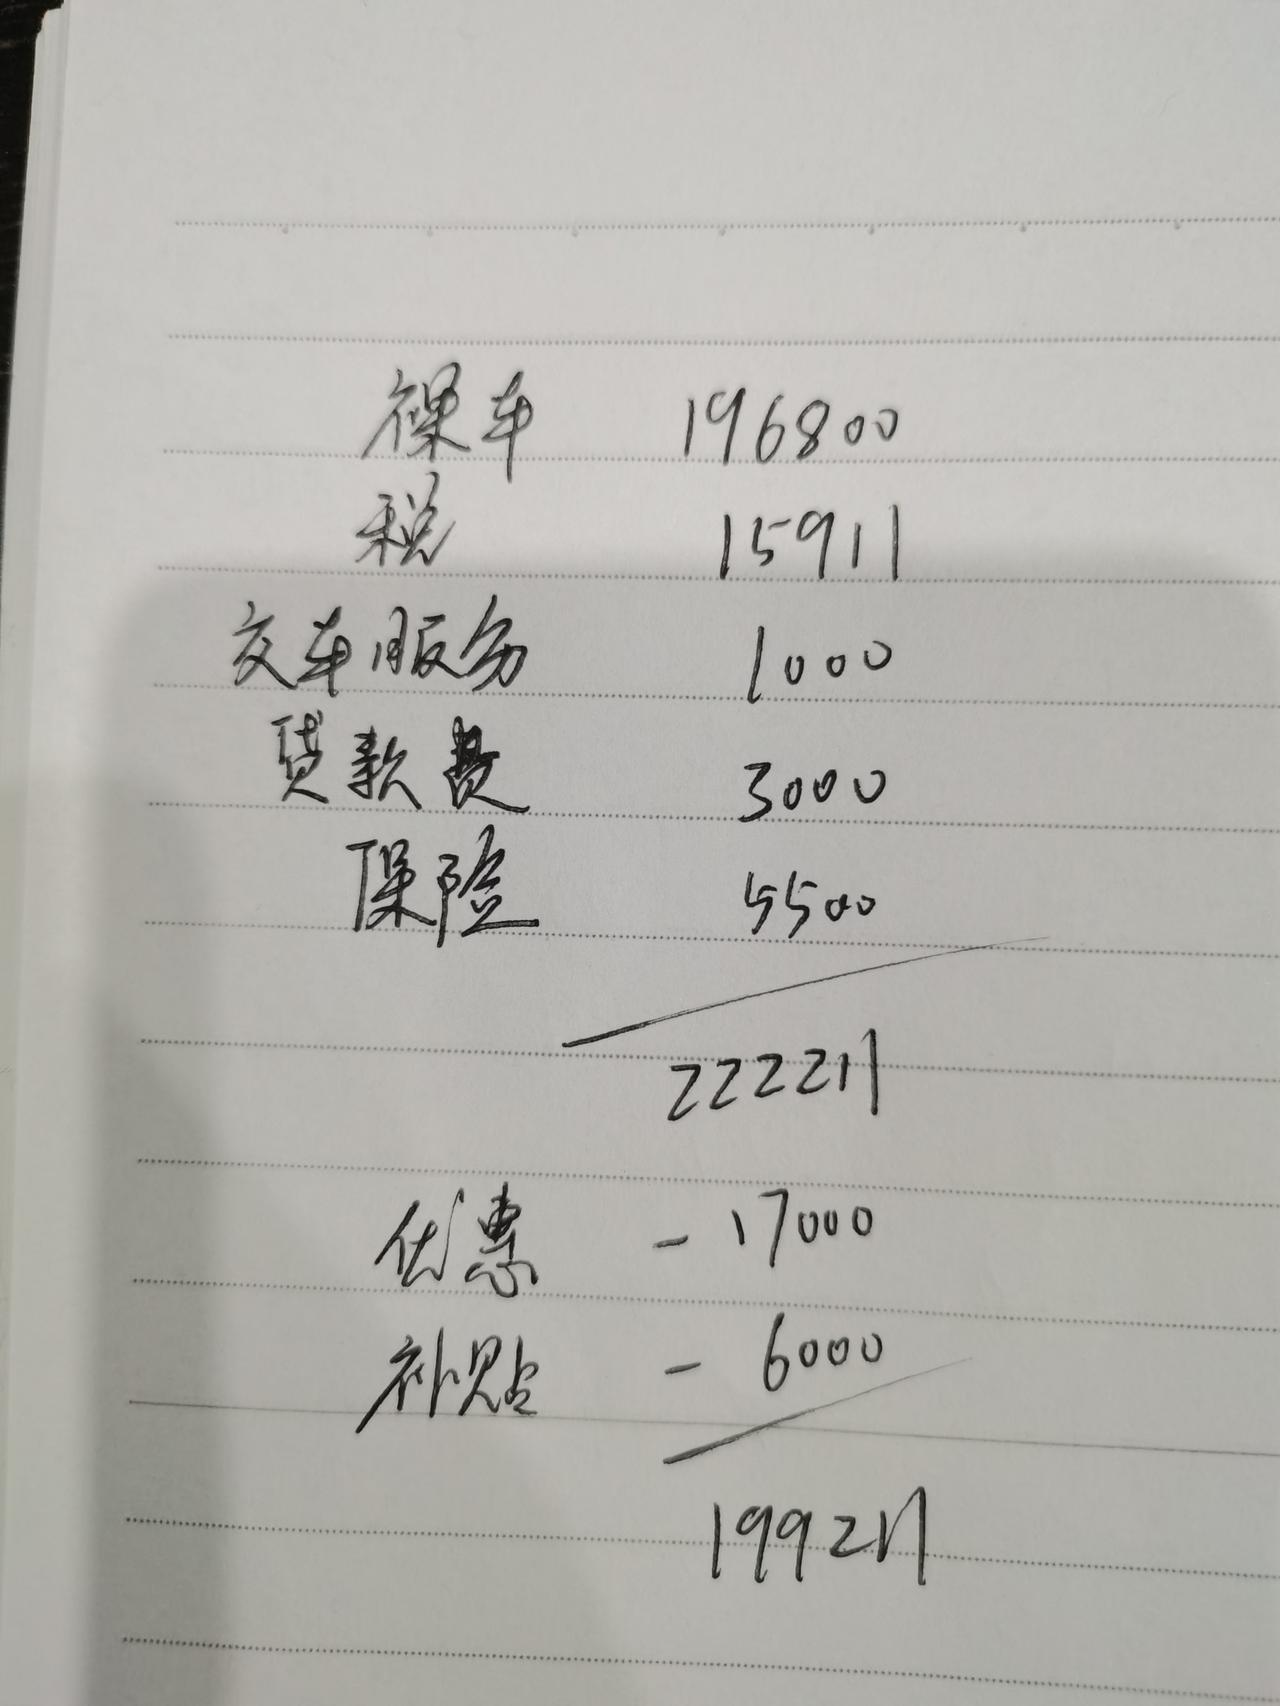 裸车 196800
税 15911
交车服务 1000
贷款费 3000
保险 5500
222211
优惠 - 17000
补贴 - 6000
199211